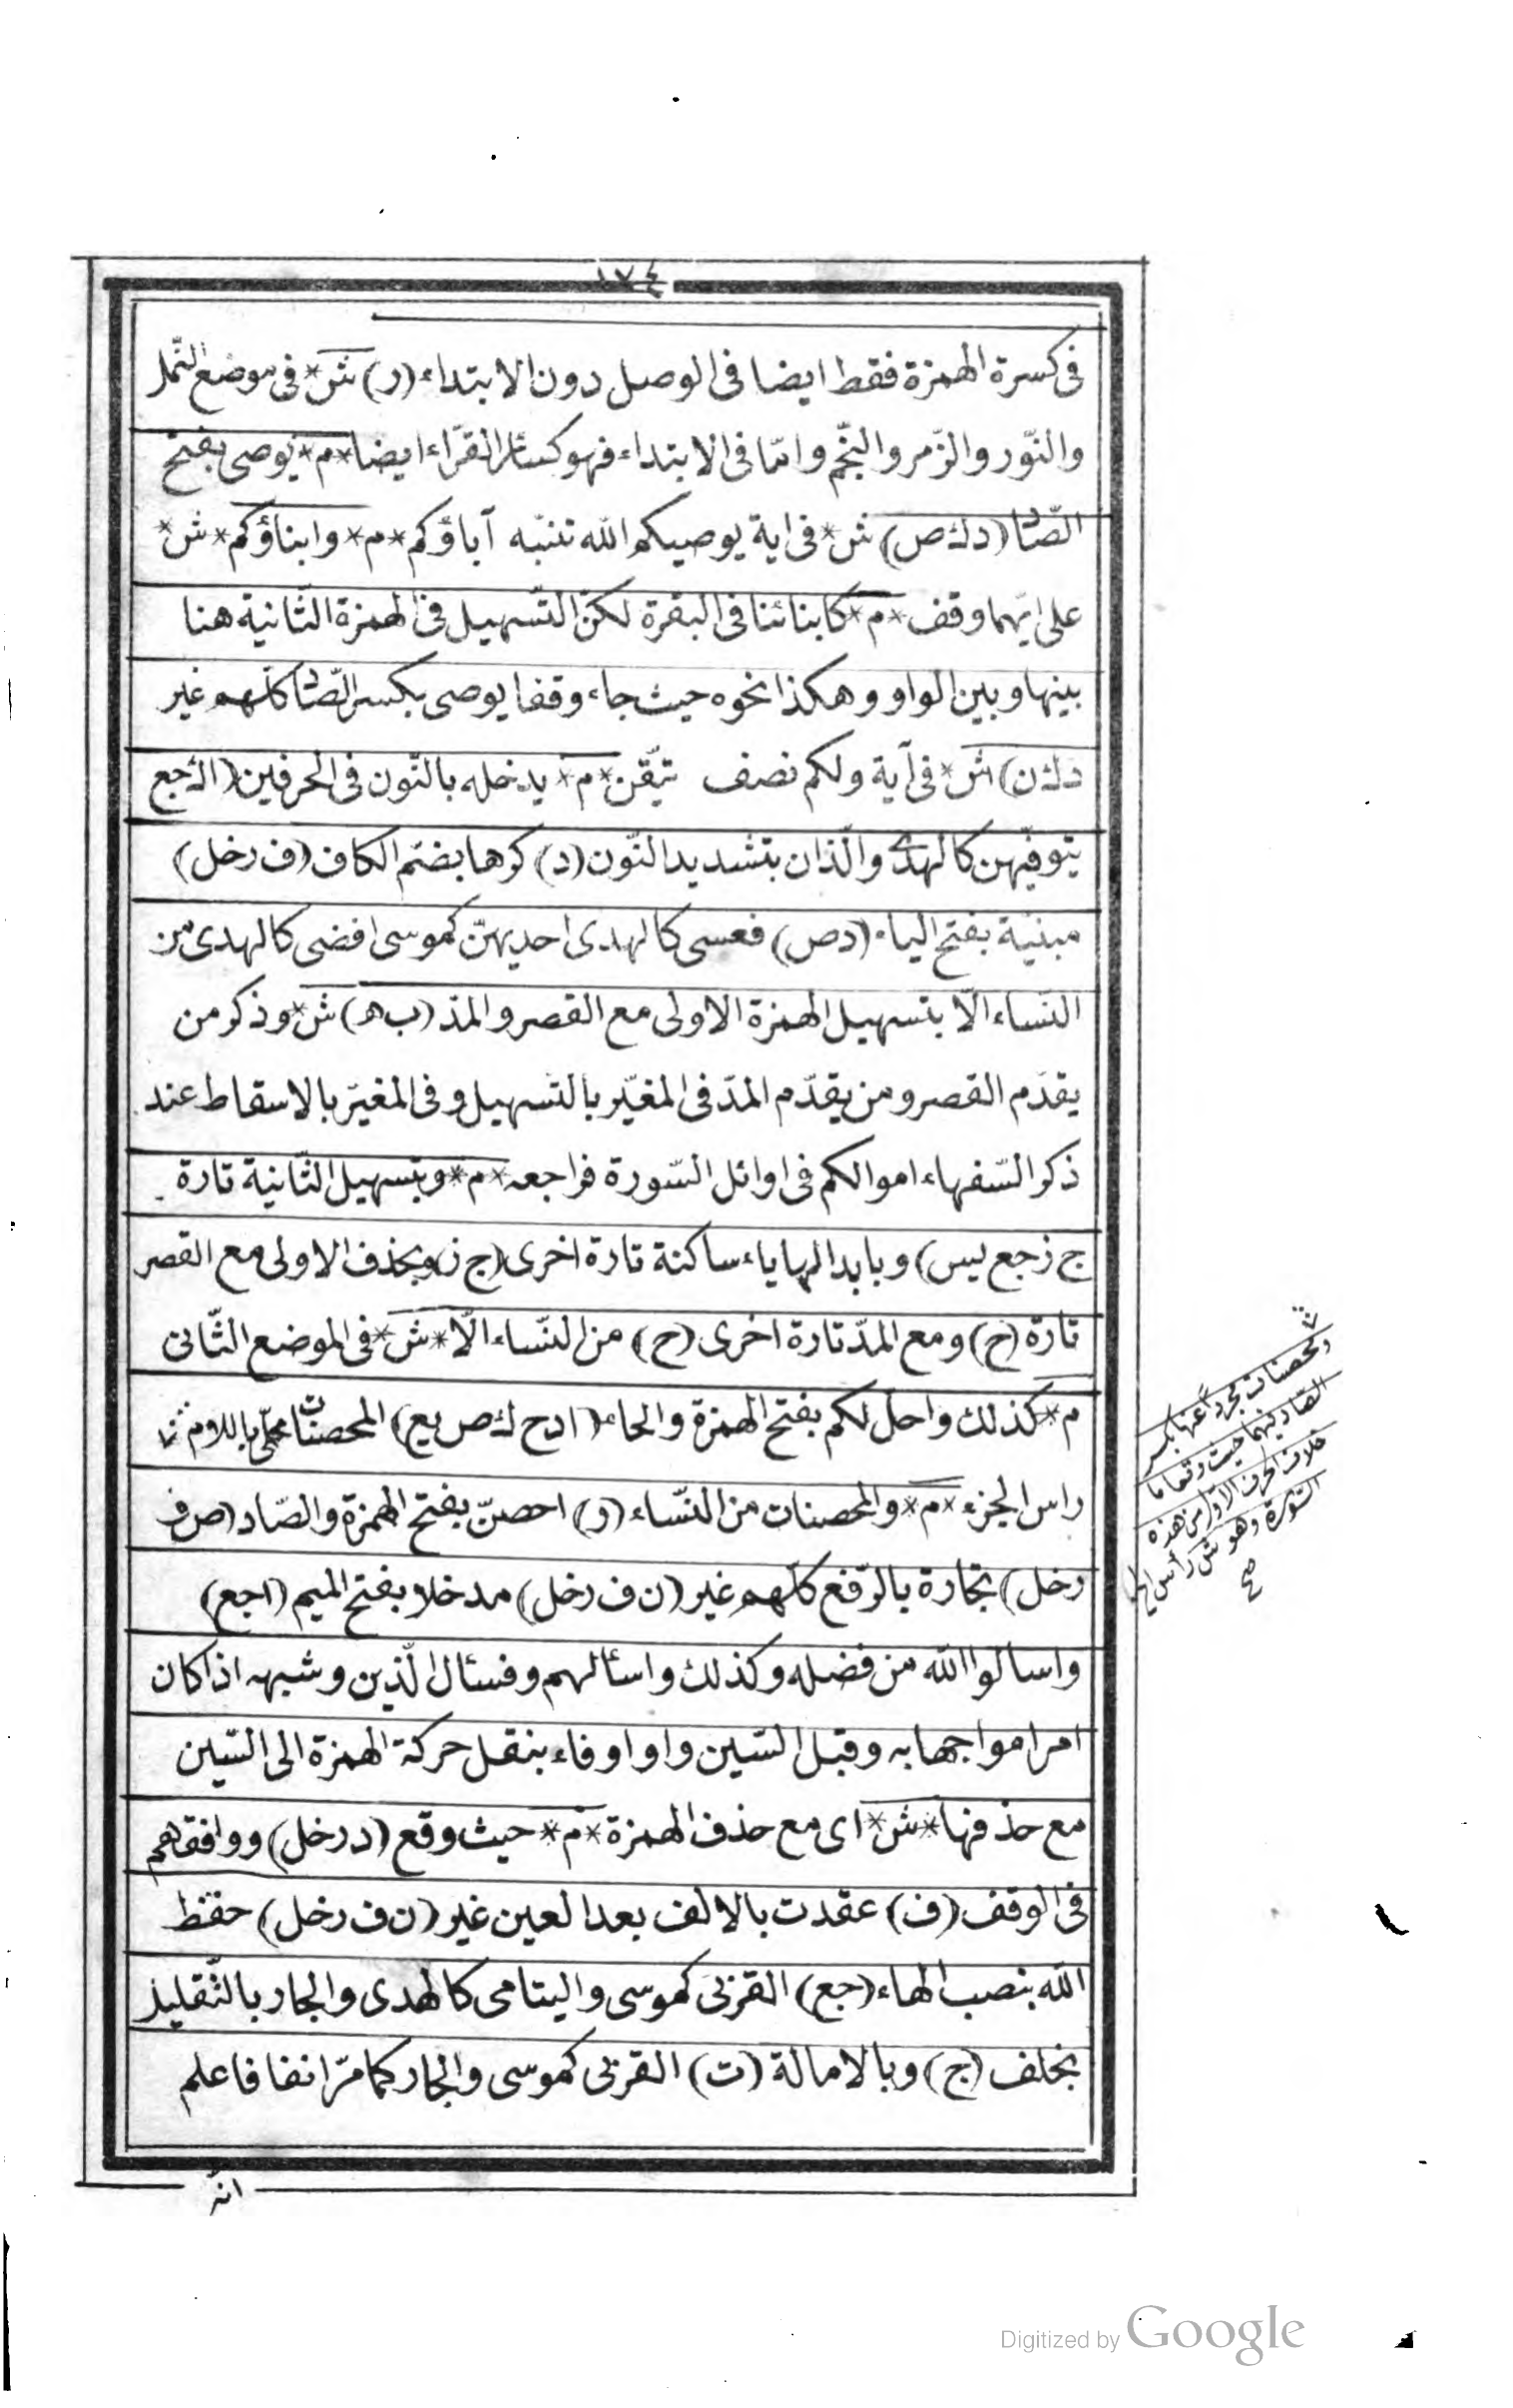 ١٧٤
فى كسرة الهمزة فقط ايضا فى الوصل دون الابتداء (ر) ش* فى موضع النّمل
والنّور والزّمر والنّجم وامّا فى الابتداء فهو كسائر القرّاء ايضا *م* يوصى بفتح
الصّاد (دك ص) ش* فى اية يوصيكم الله تنبّه آباؤكم *م* وابناؤكم *ش*
على ايّهما وقف *م* كابنائنا فى البقرة لكنّ التّسهيل فى الهمزة الثّانية هنا
بينها وبين الواو وهكذا نحوه حيث جاء وقفا يوصى بكسر الصّاد كلّهم غير
دك ن) ش* فى آية ولكم نصف تيقّن *م* يدخله بالنّون فى الحرفين (ا جع
يتوفّيهن كالهدى والّذان بتشديد النّون (د) كرها بضمّ الكاف (ف رخل)
مبنيّة بفتح الياء (دص) فعسى كالهدى احديهنّ كموسى افضى كالهدى من
النّساء الّا بتسهيل الهمزة الاولى مع القصر والمدّ (ب ه) ش* وذكر من
يقدّم القصر ومن يقدّم المدّ فى المغيّر بالتّسهيل وفى المغيّر بالاسقاط عند
ذكر السّفهاء اموالكم فى اوائل السّورة فراجعه *م* وبتسهيل الثّانية تارة
ج ز جع يس) وبابدالها ياء ساكنة تارة اخرى (ج ز) وبحذف الاولى مع القصر
تارة (ح) ومع المدّ تارة اخرى (ح) من النّساء الّا *ش* فى الموضع الثّانى
م* كذلك واحل لكم بفتح الهمزة والحاء (ادح ك ص يع) المحصنات محلّى باللام
راس الجزء *م* والمحصنات من النّساء (ر) احصنّ بفتح الهمزة والصّاد (ص ف
رخل) تجارة بالرّفع كلّهم غير (ن ف رخل) مدخلا بفتح الميم (ا جع)
واسالوا الله من فضله وكذلك واسألهم وفسئال الّذين وشبهه اذا كان
امرا مواجها به وقبل السّين واو او فاء بنقل حركة الهمزة الى السّين
مع حذفها *ش* اى مع حذف الهمزة *م* حيث وقع (د رخل) ووافقهم
فى الوقف (ف) عقدت بالالف بعد العين غير (ن ف رخل) حفظ
الله بنصب الهاء (جع) القربى كموسى واليتامى كالهدى والجار بالتّقليل
بخلف (ج) وبالامالة (ت) القربى كموسى والجار كما مرّ انفا فاعلم
انّه
ومحصنات مجرّدا عنها بكسر
الصّاد فيهما حيث وقعا
خلاف الحرف الاوّل من هذه
السّورة وهو ش راس
صح
Digitized by Google